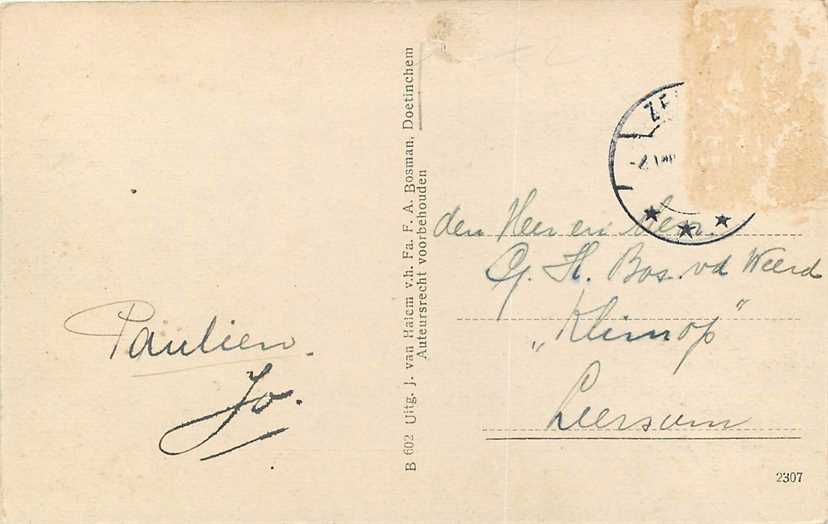 Paulien.
Jo.
B 602 Uitg. J. van Halem v.h. Fa. F. A. Bosman, Doetinchem
Auteursrecht voorbehouden
ZE
den Heer en Mevr.
G. H. Bos. vd Weerd
„Klimop"
Leersum
2307